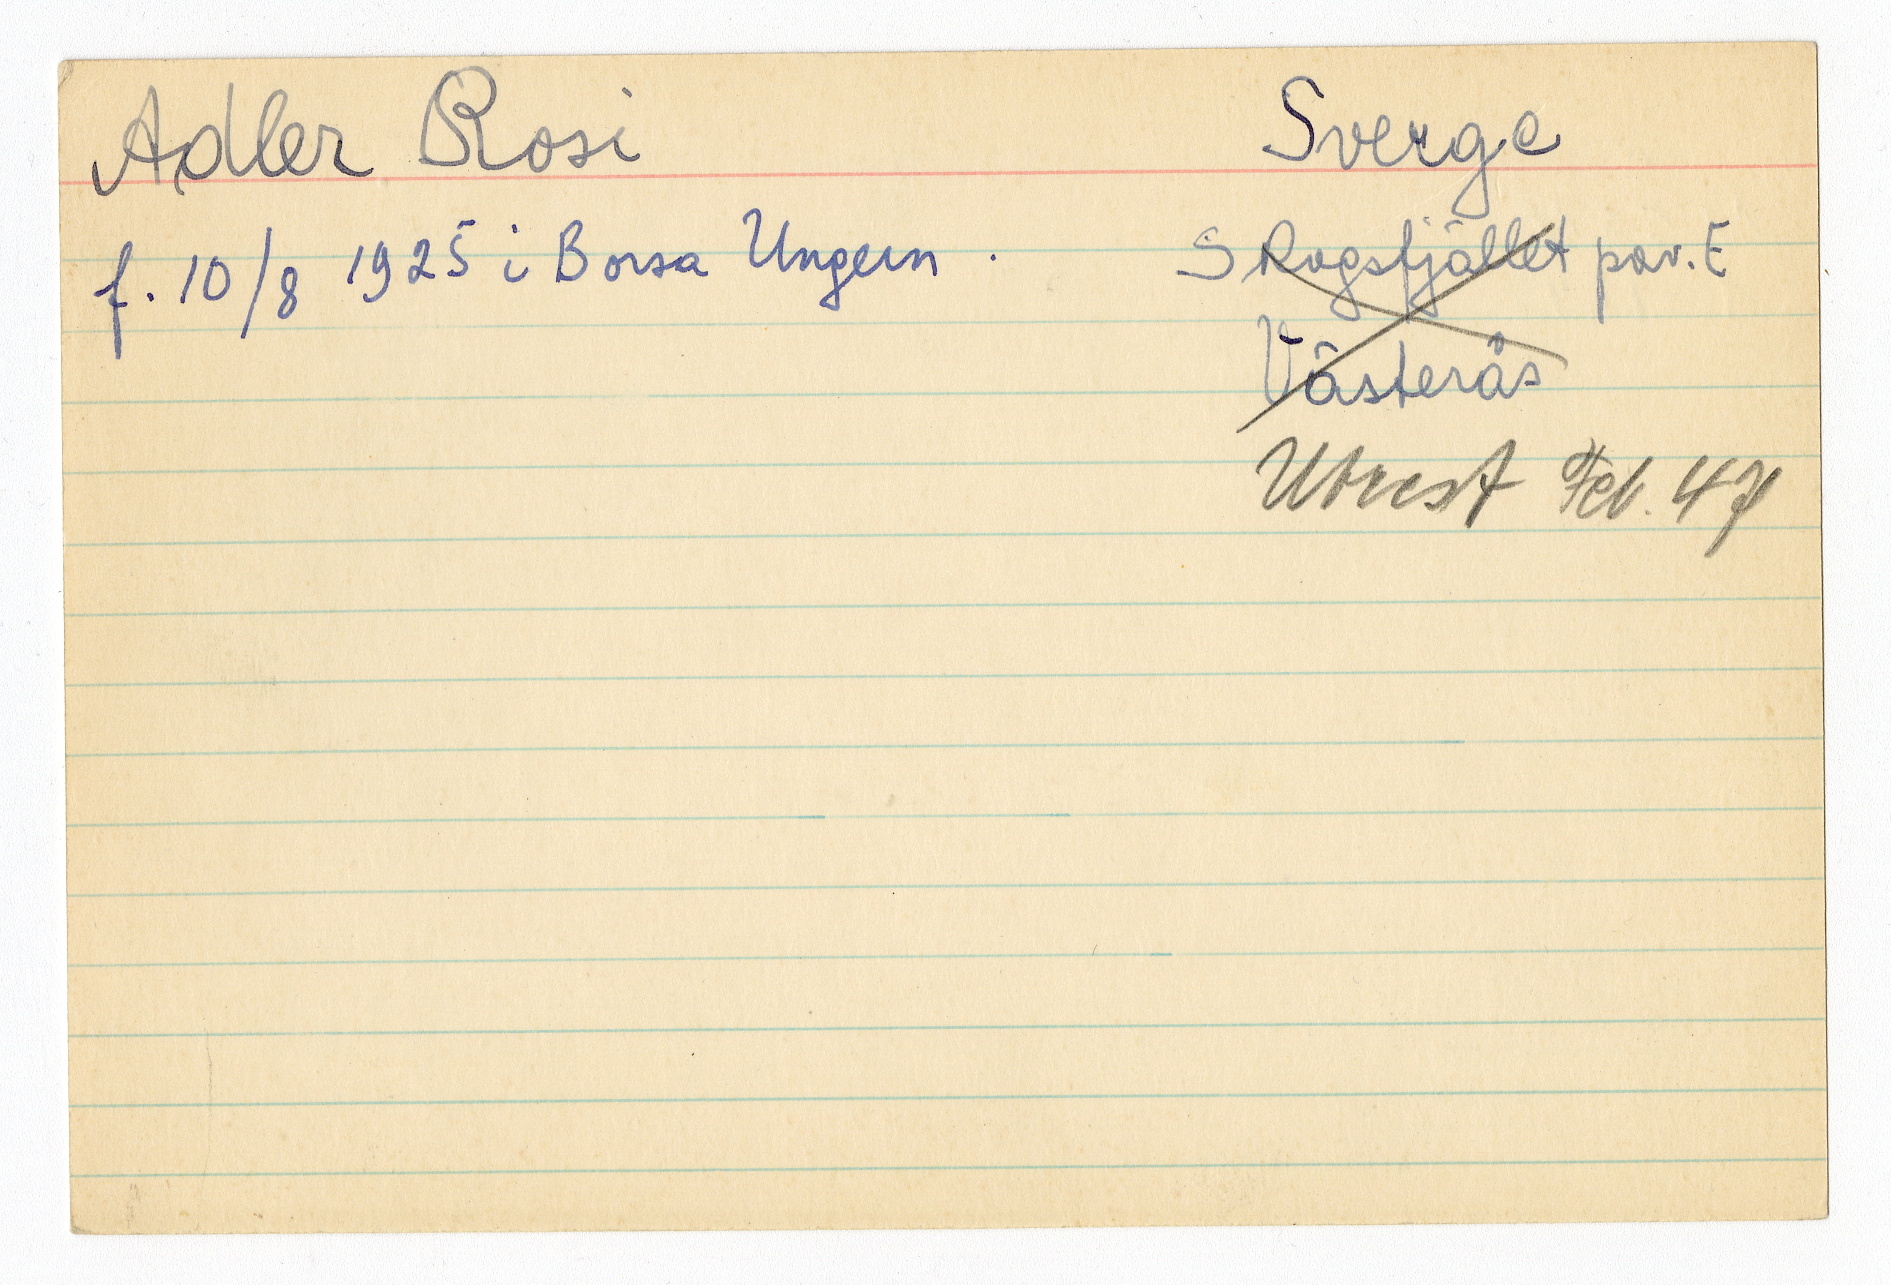 Adler Rosi
Sverge
f. 10/8 1925 i Borsa Ungern.
Skogsfjället pav. E
Västerås
Utrest Feb. 47